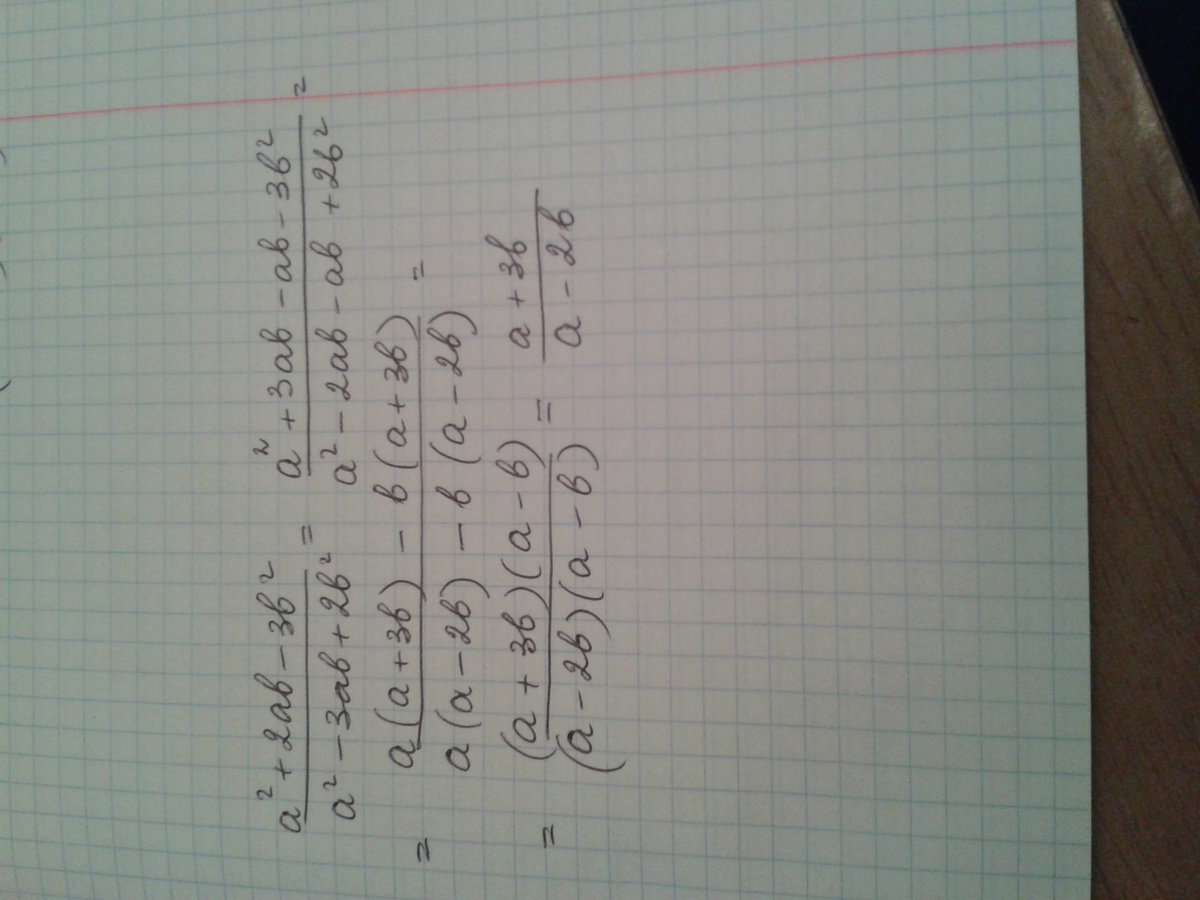 (a² + 2ab - 3b²)/(a² - 3ab + 2b²) = (a² + 3ab - ab - 3b²)/(a² - 2ab - ab + 2b²) =
= (a(a + 3b) - b(a + 3b))/(a(a - 2b) - b(a - 2b)) =
= ((a + 3b)(a - b))/((a - 2b)(a - b)) = (a + 3b)/(a - 2b)